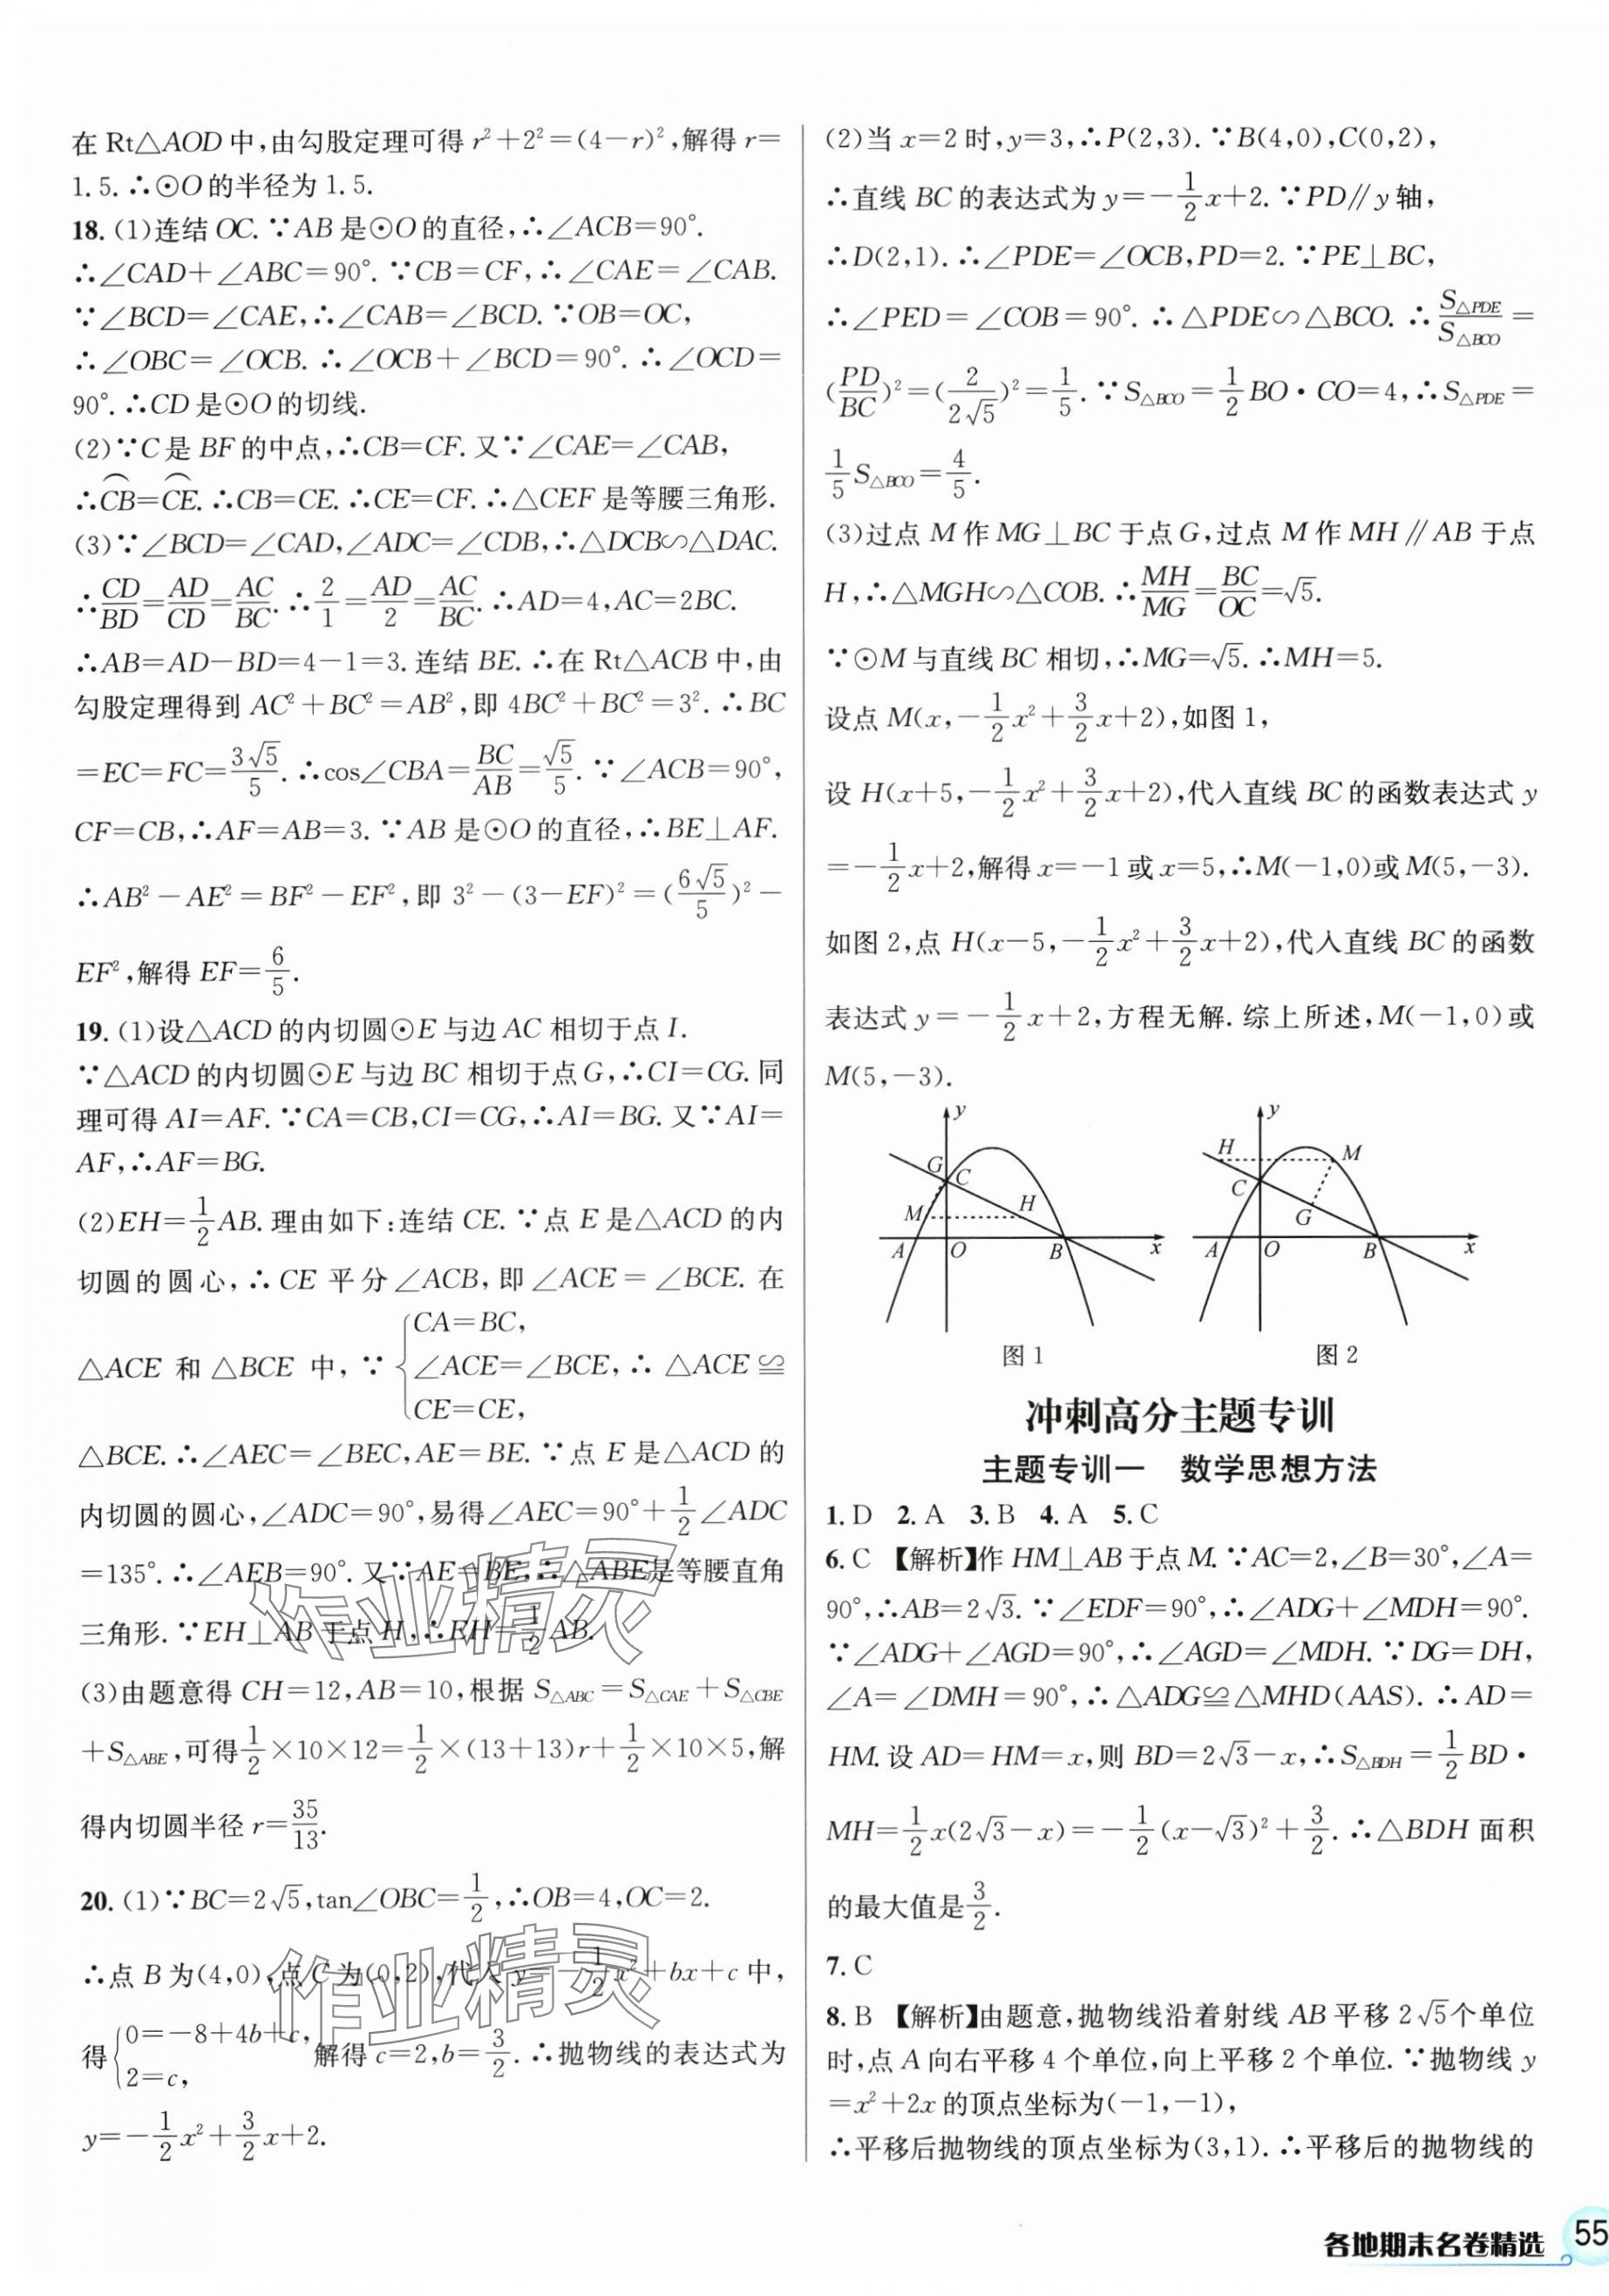 在 Rt△AOD 中,由勾股定理可得 r²+2²=(4−r)²,解得 r=
1.5.∴⊙O 的半径为 1.5.
18.(1)连结 OC.∵AB 是⊙O 的直径,∴∠ACB=90°.
∴∠CAD+∠ABC=90°.∵CB=CF,∴∠CAE=∠CAB.
∵∠BCD=∠CAE,∴∠CAB=∠BCD.∵OB=OC,
∴∠OBC=∠OCB.∴∠OCB+∠BCD=90°.∴∠OCD=
90°.∴CD 是⊙O 的切线.
(2)∵C 是 BF 的中点,∴CB=CF.又∵∠CAE=∠CAB,
∴⌒CB=⌒CE.∴CB=CE.∴CE=CF.∴△CEF 是等腰三角形.
(3)∵∠BCD=∠CAD,∠ADC=∠CDB,∴△DCB∽△DAC.
∴CD/BD=AD/CD=AC/BC.∴2/1=AD/2=AC/BC.∴AD=4,AC=2BC.
∴AB=AD−BD=4−1=3.连结 BE.∴在 Rt△ACB 中,由
勾股定理得到 AC²+BC²=AB²,即 4BC²+BC²=3².∴BC
=EC=FC=3√5/5.∴cos∠CBA=BC/AB=√5/5.∵∠ACB=90°,
CF=CB,∴AF=AB=3.∵AB 是⊙O 的直径,∴BE⊥AF.
∴AB²−AE²=BF²−EF²,即 3²−(3−EF)²=(6√5/5)²−
EF²,解得 EF=6/5.
19.(1)设△ACD 的内切圆⊙E 与边 AC 相切于点 I.
∵△ACD 的内切圆⊙E 与边 BC 相切于点 G,∴CI=CG.同
理可得 AI=AF.∵CA=CB,CI=CG,∴AI=BG.又∵AI=
AF,∴AF=BG.
(2)EH=1/2AB.理由如下:连结 CE.∵点 E 是△ACD 的内
切圆的圆心,∴CE 平分∠ACB,即∠ACE=∠BCE.在
△ACE 和△BCE 中,∵{CA=BC,
∠ACE=∠BCE,∴△ACE≌
CE=CE,
△BCE.∴∠AEC=∠BEC,AE=BE.∵点 E 是△ACD 的
内切圆的圆心,∠ADC=90°,易得∠AEC=90°+1/2∠ADC
=135°.∴∠AEB=90°.又∵AE=BE,∴△ABE是等腰直角
三角形.∵EH⊥AB 于点 H,∴EH=1/2AB.
(3)由题意得 CH=12,AB=10,根据 S△ABC=S△CAE+S△CBE
+S△ABE,可得1/2×10×12=1/2×(13+13)r+1/2×10×5,解
得内切圆半径 r=35/13.
20.(1)∵BC=2√5,tan∠OBC=1/2,∴OB=4,OC=2.
∴点 B 为(4,0),点 C 为(0,2),代入 y=−1/2x²+bx+c 中,
得{0=−8+4b+c, 2=c, 解得 c=2,b=3/2.∴抛物线的表达式为
y=−1/2x²+3/2x+2.
(2)当 x=2 时,y=3,∴P(2,3).∵B(4,0),C(0,2),
∴直线 BC 的表达式为 y=−1/2x+2.∵PD∥y 轴,
∴D(2,1).∴∠PDE=∠OCB,PD=2.∵PE⊥BC,
∴∠PED=∠COB=90°.∴△PDE∽△BCO.∴S△PDE/S△BCO=
(PD/BC)²=(2/2√5)²=1/5.∵S△BCO=1/2BO·CO=4,∴S△PDE=
1/5S△BCO=4/5.
(3)过点 M 作 MG⊥BC 于点 G,过点 M 作 MH∥AB 于点
H,∴△MGH∽△COB.∴MH/MG=BC/OC=√5.
∵⊙M 与直线 BC 相切,∴MG=√5.∴MH=5.
设点 M(x,−1/2x²+3/2x+2),如图 1,
设 H(x+5,−1/2x²+3/2x+2),代入直线 BC 的函数表达式 y
=−1/2x+2,解得 x=−1 或 x=5,∴M(−1,0)或 M(5,−3).
如图 2,点 H(x−5,−1/2x²+3/2x+2),代入直线 BC 的函数
表达式 y=−1/2x+2,方程无解.综上所述,M(−1,0)或
M(5,−3).
y G C M H A O B x
图 1
y H M C G A O B x
图 2
冲刺高分主题专训
主题专训一 数学思想方法
1.D 2.A 3.B 4.A 5.C
6.C 【解析】作 HM⊥AB 于点 M.∵AC=2,∠B=30°,∠A=
90°,∴AB=2√3.∵∠EDF=90°,∴∠ADG+∠MDH=90°.
∵∠ADG+∠AGD=90°,∴∠AGD=∠MDH.∵DG=DH,
∠A=∠DMH=90°,∴△ADG≌△MHD(AAS).∴AD=
HM.设 AD=HM=x,则 BD=2√3−x,∴S△BDH=1/2BD·
MH=1/2x(2√3−x)=−1/2(x−√3)²+3/2.∴△BDH 面积
的最大值是3/2.
7.C
8.B 【解析】由题意,抛物线沿着射线 AB 平移 2√5个单位
时,点 A 向右平移 4 个单位,向上平移 2 个单位.∵抛物线 y
=x²+2x 的顶点坐标为(−1,−1),
∴平移后抛物线的顶点坐标为(3,1).∴平移后的抛物线的
作业精灵
作业精灵
各地期末名卷精选 55